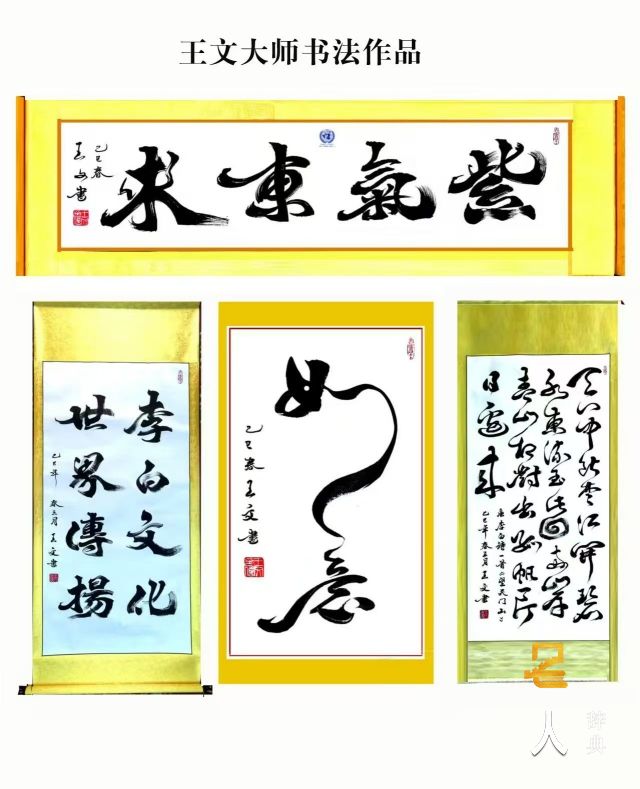 王文大师书法作品
紫氣東來
乙巳春
王文書
李白文化
世界傳揚
乙巳年 春三月 王文書
如意
乙巳春王文書
天门中断楚江開碧
水東流至此回两岸
青山相對出孤帆一片
日邊来
唐李白诗一首《望天门山》
乙巳年春三月王文書
名
人
辞典